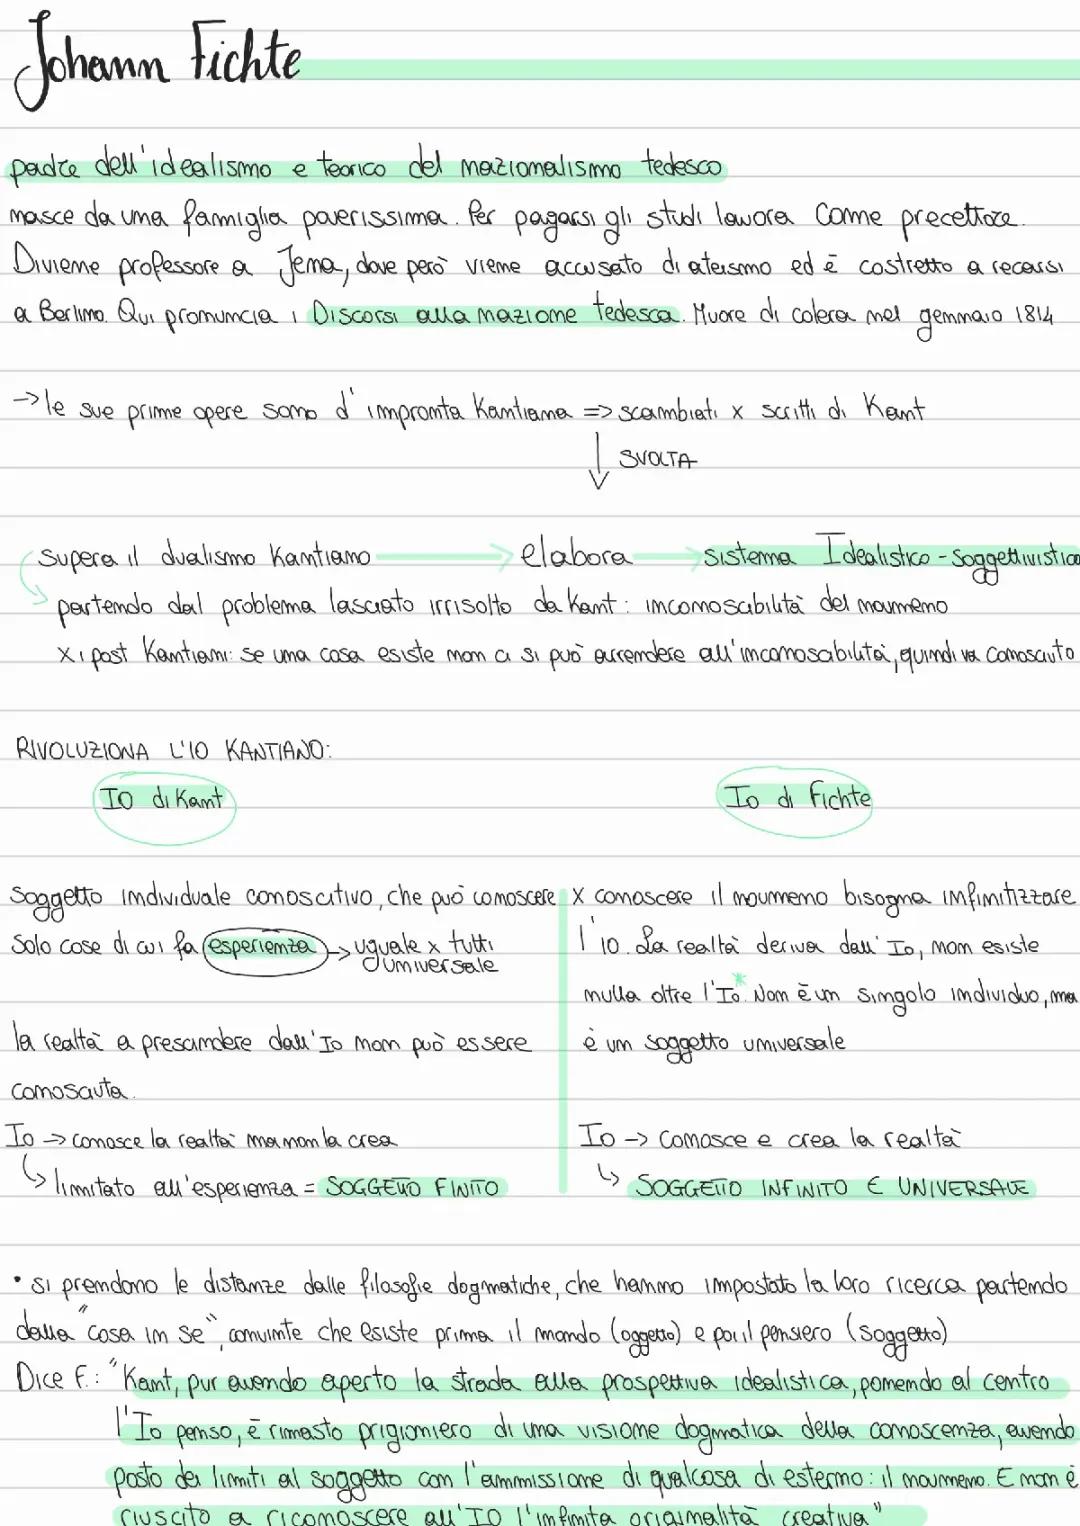 Johann Fichte
padre dell'idealismo e teorico del nazionalismo tedesco
nasce da una famiglia poverissima. Per pagarsi gli studi lavora come precettore.
Diviene professore a Jena, dove però viene accusato di ateismo ed è costretto a recarsi
a Berlino. Qui pronuncia i Discorsi alla nazione tedesca. Muore di colera nel gennaio 1814
→ le sue prime opere sono d'impronta Kantiana => scambiati x scritti di Kant
↓ SVOLTA
supera il dualismo Kantiano → elabora → sistema Idealistico - Soggettivistico
partendo dal problema lasciato irrisolto da Kant: inconoscibilità del noumeno
x i post Kantiani: se una cosa esiste non ci si può arrendere all'inconoscibilità, quindi va conosciuto
RIVOLUZIONA L'IO KANTIANO:
IO di Kant
Io di Fichte
Soggetto individuale conoscitivo, che può conoscere
solo cose di cui fa esperienza → uguale x tutti
universale
la realtà a prescindere dall'Io non può essere
conosciuta.
Io → conosce la realtà ma non la crea
↳ limitato all'esperienza = SOGGETTO FINITO
x conoscere il noumeno bisogna infinitizzare
l'io. La realtà deriva dall'Io, non esiste
nulla oltre l'Io.* Non è un singolo individuo, ma
è un soggetto universale
Io → Conosce e crea la realtà
↳ SOGGETTO INFINITO E UNIVERSALE
• si prendono le distanze dalle filosofie dogmatiche, che hanno impostato la loro ricerca partendo
dalla "cosa in se", convinte che esiste prima il mondo (oggetto) e poi il pensiero (soggetto)
Dice F.: "Kant, pur avendo aperto la strada alla prospettiva idealistica, ponendo al centro
l'Io penso, è rimasto prigioniero di una visione dogmatica della conoscenza, avendo
posto dei limiti al soggetto con l'ammissione di qualcosa di esterno: il noumeno. E non è
riuscito a riconoscere all'IO l'infinita originalità creativa"